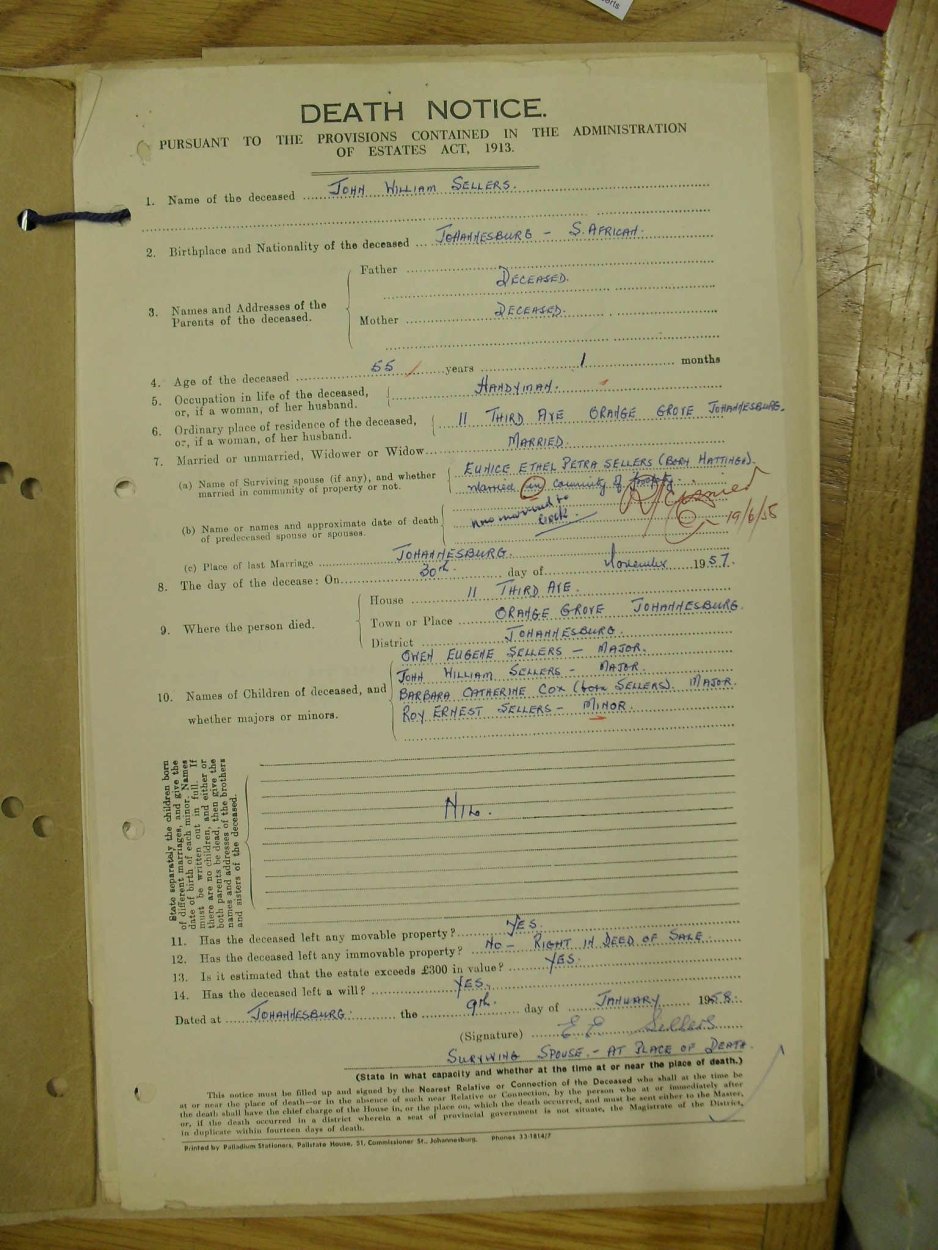 DEATH NOTICE.
PURSUANT TO THE PROVISIONS CONTAINED IN THE ADMINISTRATION
OF ESTATES ACT, 1913.
1. Name of the deceased JOHN WILLIAM SELLERS.
2. Birthplace and Nationality of the deceased JOHANNESBURG – S. AFRICAN.
3. Names and Addresses of the Parents of the deceased.
Father DECEASED.
Mother DECEASED.
4. Age of the deceased 55 years 1 months
5. Occupation in life of the deceased, or, if a woman, of her husband. HANDYMAN.
6. Ordinary place of residence of the deceased, or, if a woman, of her husband. 11 THIRD AVE ORANGE GROVE JOHANNESBURG.
7. Married or unmarried, Widower or Widow MARRIED.
(a) Name of Surviving spouse (if any), and whether married in community of property or not. EUNICE ETHEL PETRA SELLERS (BORN HATTINGH).
married in community of property.
19/6/58
(b) Name or names and approximate date of death of predeceased spouse or spouses.
(c) Place of last Marriage JOHANNESBURG.
8. The day of the decease: On 30th. day of November 1957.
9. Where the person died.
House 11 THIRD AVE.
Town or Place ORANGE GROVE JOHANNESBURG.
District JOHANNESBURG.
10. Names of Children of deceased, and
whether majors or minors.
OWEN EUGENE SELLERS – MAJOR.
JOHN WILLIAM SELLERS – MAJOR.
BARBARA CATHERINE COX (born SELLERS). MAJOR.
ROY ERNEST SELLERS – MINOR.
State separately the children born
of different marriages, and give the
date of birth of each minor. Names
must be written out in full. If
there are no children, and either or
both parents be dead, then give the
names and addresses of the brothers
and sisters of the deceased.
NIL.
11. Has the deceased left any movable property? YES.
12. Has the deceased left any immovable property? NO – RIGHT IN DEED OF SALE.
13. Is it estimated that the estate exceeds £300 in value? YES.
14. Has the deceased left a will? YES.
Dated at JOHANNESBURG. the 9th. day of JANUARY 1958.
(Signature) E E Sellers
SURVIVING SPOUSE. – AT PLACE OF DEATH.
(State in what capacity and whether at the time at or near the place of death.)
This notice must be filled up and signed by the Nearest Relative or Connection of the Deceased who shall at the time be
at or near the place of death—or in the absence of such near Relative or Connection, by the person who at or immediately after
the death shall have the chief charge of the House in, or the place on, which the death occurred, and must be sent either to the Master,
or, if the death occurred in a district wherein a seat of provincial government is not situate, the Magistrate of the District,
in duplicate within fourteen days of death.
Printed by Palladium Stationers, Pallstate House, 51, Commissioner St., Johannesburg. Phones 33-1814/7